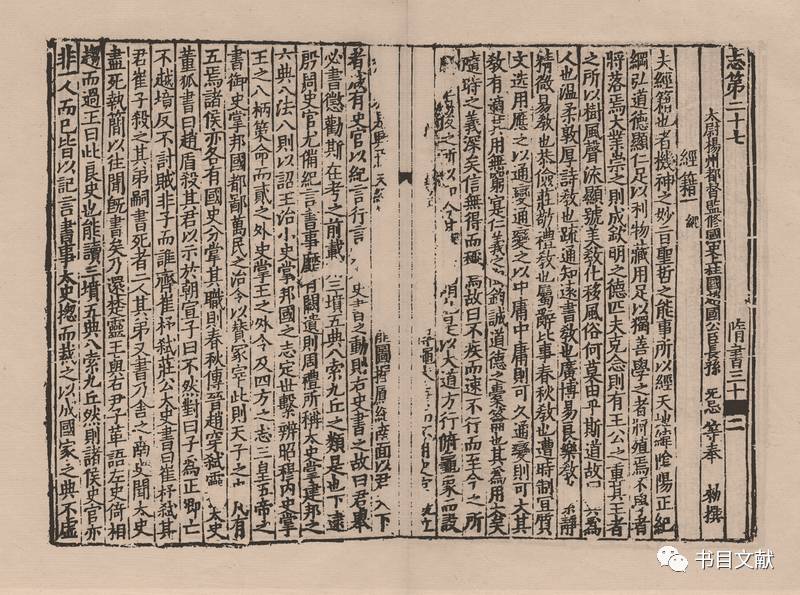 志第二十七 隋書三十二
太尉楊州都督監修國史上柱國趙國公臣長孫 无忌 等奉 勑撰
經籍一 經
夫經籍也者機神之妙旨聖哲之能事所以經天地緯陰陽正紀
綱弘道德顯仁足以利物藏用足以獨善學之者將殖焉不學者
將落焉大業崇之則成欽明之德匹夫克念則有王公之重其王者
之所以樹風聲流顯號美教化移風俗何莫由乎斯道故 為
人也溫柔敦厚詩教也疏通知遠書教也廣博易良樂教 靜
精微易教也恭儉莊敬禮教也屬辭比事春秋教也遭時制宜質
文迭用應之以通變通變之以中庸中庸則可久通變則可大其
教有適其用無窮實仁義之 鈞誠道德之橐籥也其為用大矣
隨時之義深矣言無得而稱焉故曰不疾而速不行而至今之所
後之所以 是以大道方行俯龜象而設
南面以君 下
著 有史官以紀言行言 史書之動則右史書之故曰君舉
必書懲勸斯在考之前載 三墳五典八索九丘之類是也下逮
殷周史官尤備紀言書事靡有闕遺則周禮所稱太史掌建邦之
六典八法八則以詔王治小史掌邦國之志定世繫辨昭穆內史掌
王之八柄策命而貳之外史掌王之外令及四方之志三皇五帝之
書御史掌邦國都鄙萬民之治令以贊冢宰此則天子之 凡有
五焉諸侯亦各有國史分掌其職則春秋傳晉趙穿弒靈 太史
董狐書曰趙盾殺其君以示於朝宣子曰不然對曰子為正卿亡
不越境反不討賊非子而誰齊崔杼弒莊公太史書曰崔杼弒其
君崔子殺之其弟嗣書死者二人其弟又書乃舍之南史聞太史
盡死執簡以往聞既書矣乃還楚靈王與右尹子革語左史倚相
趨而過王曰此良史也能讀三墳五典八索九丘然則諸侯史官亦
非一人而已皆以記言書事太史揔而裁之以成國家之典不虛
书目文献